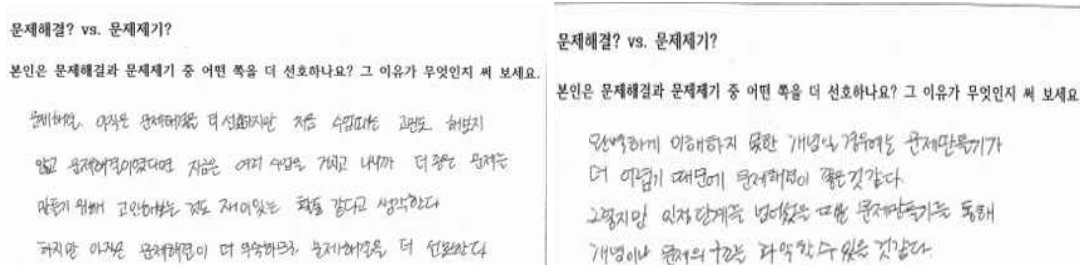 문제해결? vs. 문제제기?
본인은 문제해결과 문제제기 중 어떤 쪽을 더 선호하나요? 그 이유가 무엇인지 써 보세요.
문제해결, 아직은 문제해결을 더 선호하지만 처음 수업때는 고민도 해보지
않고 문제해결이였다면 지금은 여러 수업을 거치고 나니까 더 좋은 문제를
만들기 위해 고민해보는 것도 재미있는 활동 같다고 생각한다
하지만 아직은 문제해결이 더 익숙하므로, 문제해결을 더 선호한다
문제해결? vs. 문제제기?
본인은 문제해결과 문제제기 중 어떤 쪽을 더 선호하나요? 그 이유가 무엇인지 써 보세요
완벽하게 이해하지 못한 개념일 경우에는 문제만들기가
더 어렵기 때문에 문제해결이 좋은것 같다.
그렇지만 일정단계를 넘어섰을 때 문제만들기를 통해
개념이나 문제의 구조를 파악할 수 있을 것같다.